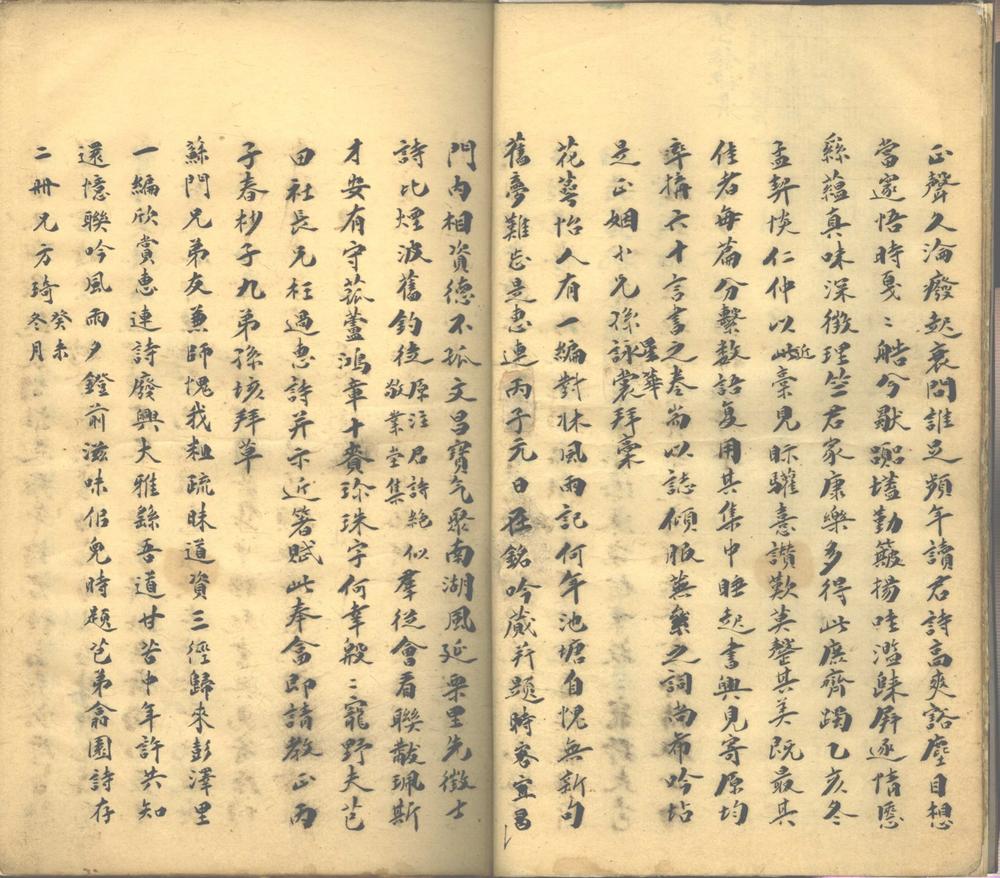 正聲久淪癈起衰問誰足頻年讀君詩高爽豁塵目想
當邃悟時戛〻皓兮歌躑壒勤簸揚哇濫歸屏逐隋𢙣
繇蘊真味深徴理竺君家康樂多得此庶齊躅乙亥冬
孟契惔仁仲以近此稾見眎驩憙讚歎莫罄其美既最其
佳者每篇分繫数語复用其集中睡起書興見寄原均
率撍六十言書之卷耑以誌傾服蕪纍之詞尚希吟坫
是正姻小兄孫詠裳拜稾
花萼怡人有一編對牀風雨記何年池塘自愧無新句
舊夢難忘是惠連丙子元日在銘吟葴并題時客宜昌
門內相資德不孤文昌寶气聚南湖風延栗里先徴士
詩比煙波舊釣徒原注君詩絶似敬業堂集羣從會看聯黻珮斯
才安有守菰蘆鴻章十賚珍珠字何幸般〻寵野夫芑
田社長兄枉過惠詩并示近箸賦此奉畣即請教正丙
子春杪子九弟孫垓拜草
蘇門兄弟友兼師愧我麤疏昧道資三徑歸來彭澤里
一編欣賞惠連詩廢興大雅繇吾道甘苦中年許共知
還憶聯吟風雨夕鐙前滋味侶兒時題芑弟龠園詩存
二冊兄方琦癸未冬月